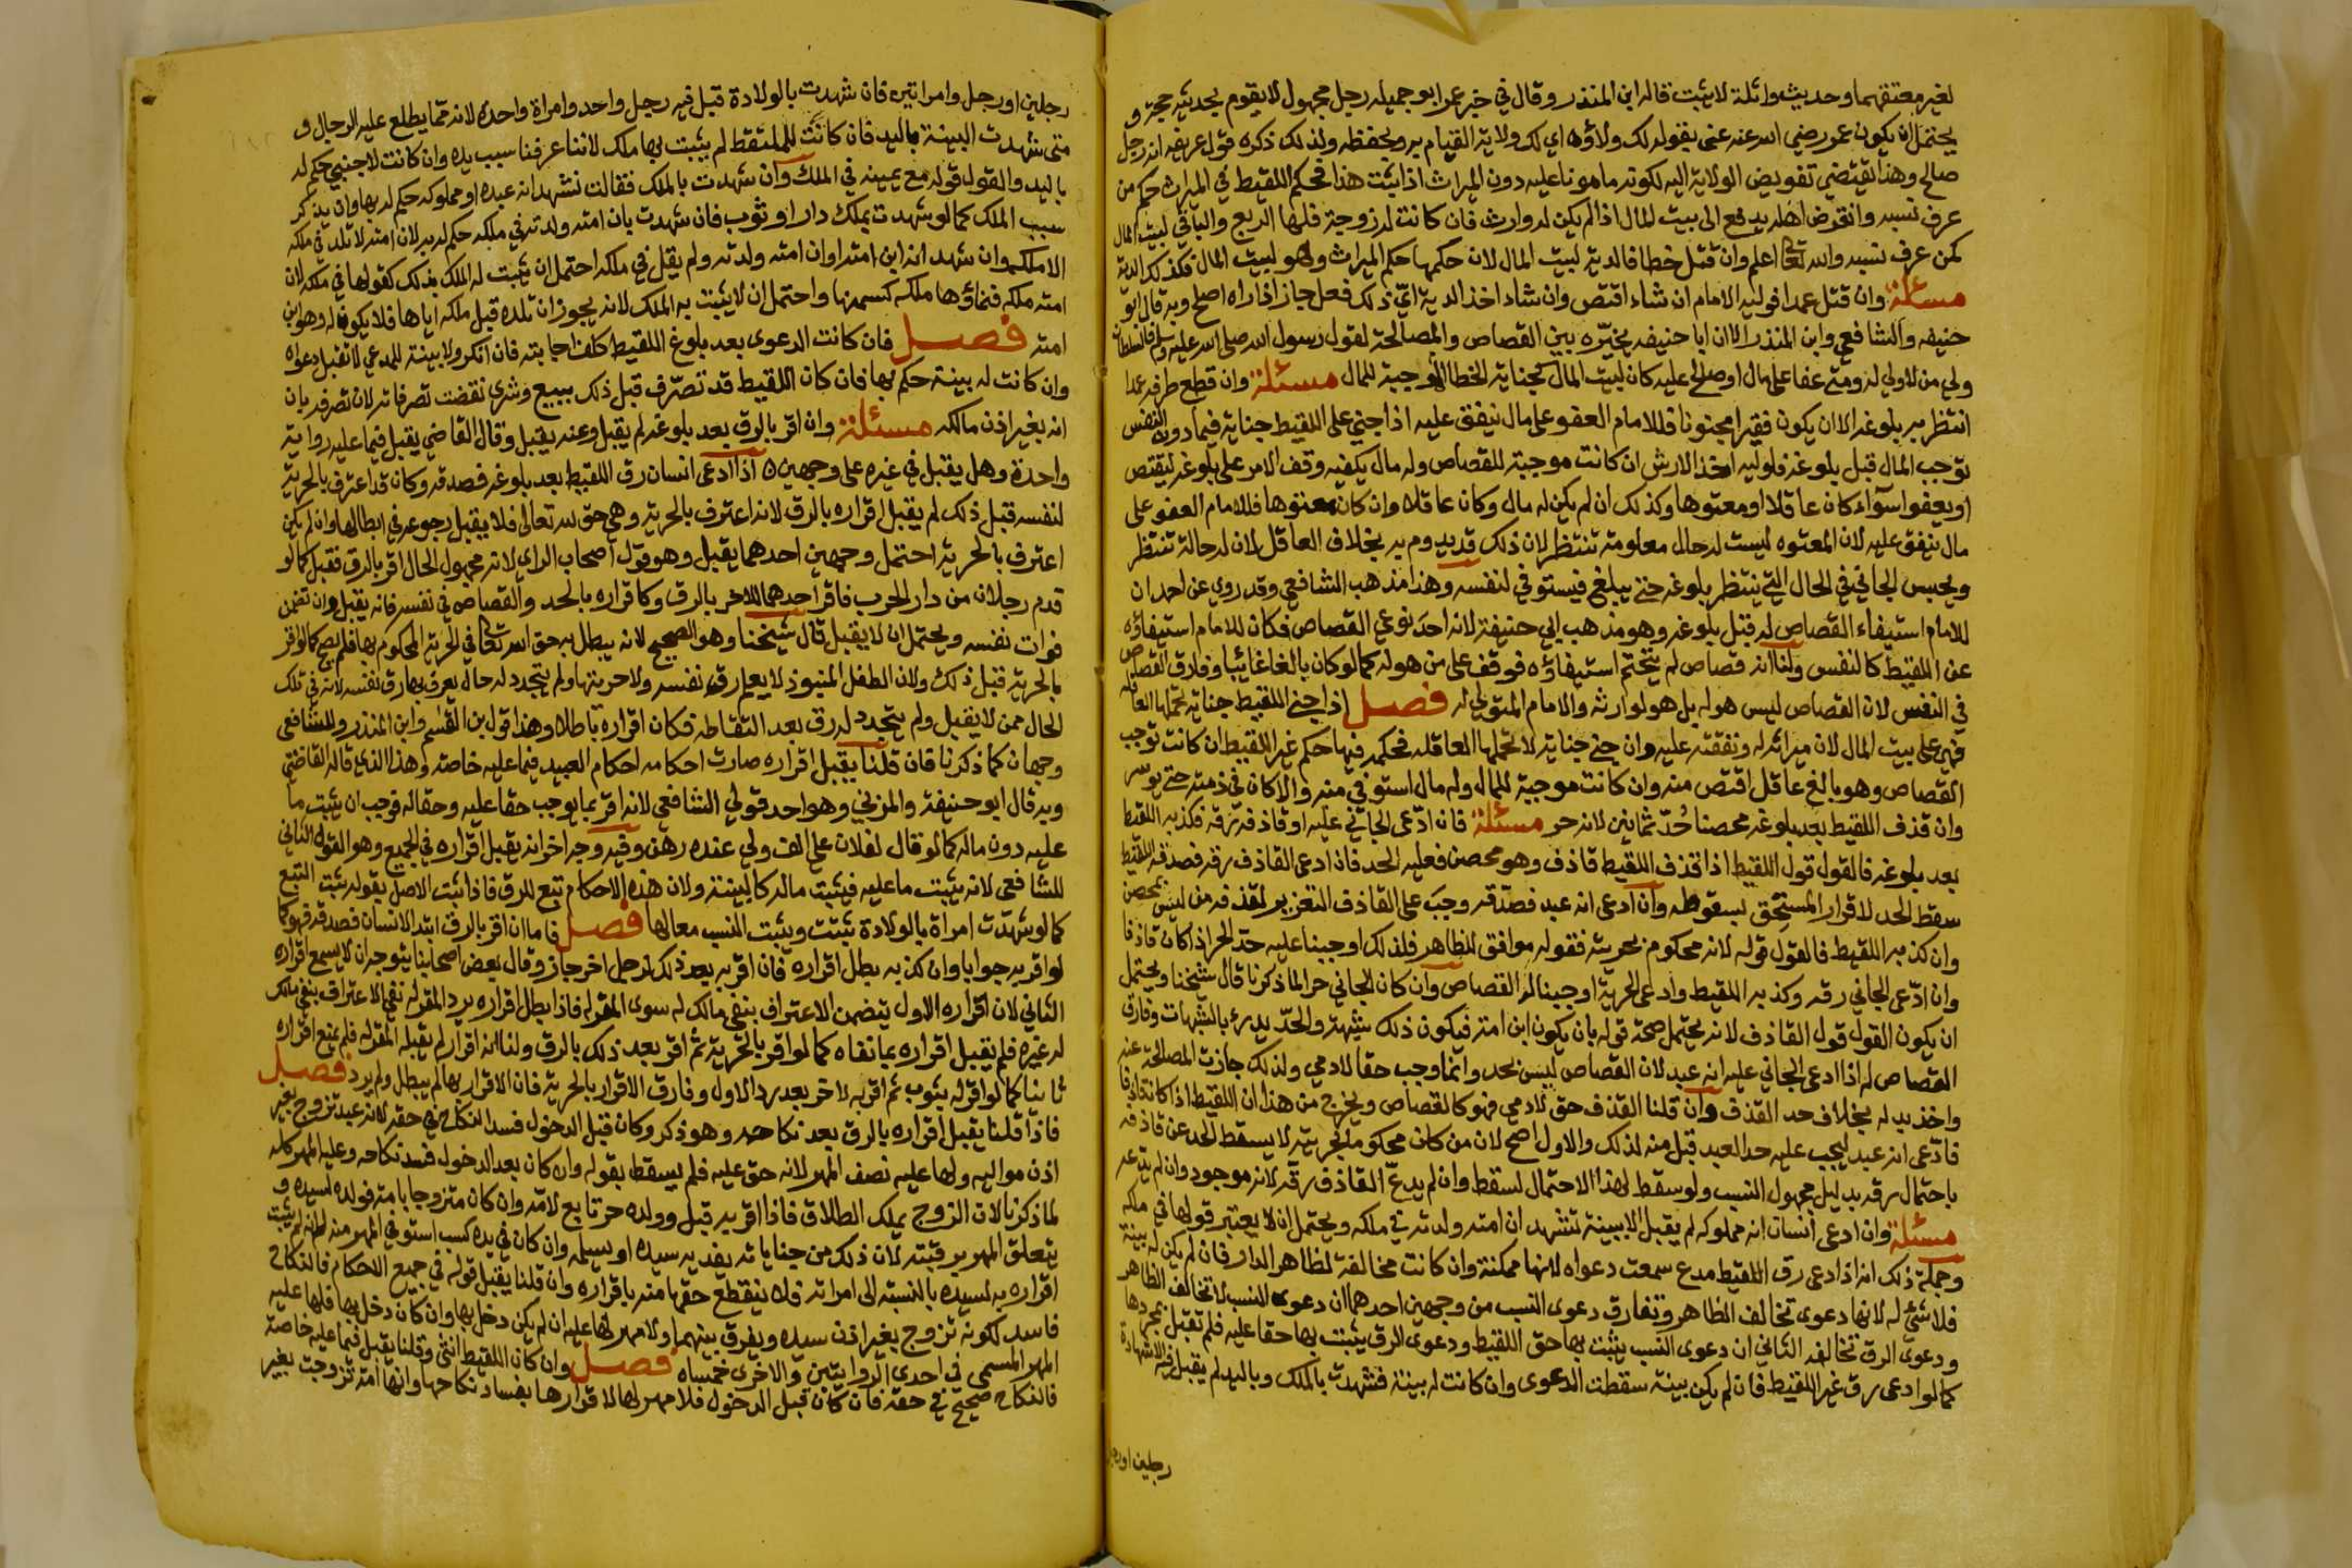 لغير معتقهما وحديث واثلة لا يثبت قاله ابن المنذر وقال في خبر عمر ابو جميله رجل مجهول لا يقوم بحديثه حجة و
يحتمل ان يكون عمر رضي الله عنه عنى بقوله لك ولاؤه اي لك ولاية القيام به وبحفظه ولذلك ذكره قول عريفه انه رجل
صالح وهذا يقتضي تفويض الولاية اليه لكونه مامونا عليه دون الميراث اذا ثبت هذا فحكم اللقيط في الميراث حكم من
عرف نسبه وانقرض اهله يدفع الى بيت المال اذا لم يكن له وارث فان كانت له زوجة فلها الربع والباقي لبيت المال
كمن عرف نسبه والله تعالى اعلم وان قتل خطا فالدية لبيت المال لان حكمها حكم الميراث وهو لبيت المال فكذلك الدية
مسئلة وان قتل عمدا فوليه الامام ان شاء اقتص وان شاء اخذ الدية اي ذلك فعل جاز اذا راه اصلح وبه قال ابو
حنيفه والشافعي وابن المنذر الا ان ابا حنيفه يخيّره بين القصاص والمصالحة لقول رسول الله صلى الله عليه وسلم فالسلطان
ولي من لا ولي له ومتى عفا على مال او صالح عليه كان لبيت المال كجناية الخطا الموجبة للمال مسئلة وان قطع طرفه عمدا
انتظر به بلوغه الا ان يكون فقيرا مجنونا فللامام العفو على مال ينفق عليه اذا جني على اللقيط جناية فيما دون النفس
توجب المال قبل بلوغه فلوليه اخذ الارش ان كانت موجبة للقصاص وله مال يكفيه وقف الامر على بلوغه ليقتص
او يعفو سوآء كان عاقلا او معتوها وكذلك ان لم يكن له مال وكان عاقلا وان كان معتوها فللامام العفو على
مال ينفق عليه لان المعتوه ليست له حال معلومة تنتظر لان ذلك قد يدوم به بخلاف العاقل لان له حالة تنتظر
ويحبس الجاني في الحال التي ينتظر بلوغه حتى يبلغ فيستوفي لنفسه وهذا مذهب الشافعي وقد روي عن احمد ان
للامام استيفاء القصاص له قبل بلوغه وهو مذهب ابي حنيفة لانه احد نوعي القصاص فكان للامام استيفاؤه
عن اللقيط كالنفس ولنا انه قصاص لم يتحتم استيفاؤه فوقف على من هو له كما لو كان بالغا غائبا وفارق القصاص
في النفس لان القصاص ليس هو له بل هو لوارثه والامام المتولي له فصل اذا جنى اللقيط جناية تحملها العاقلة
فهي على بيت المال لان ميراثه له ونفقته عليه وان جنى جناية لا تحملها العاقله فحكمه فيها حكم غير اللقيط ان كانت توجب
القصاص وهو بالغ عاقل اقتص منه وان كانت موجبة للمال وله مال استوفي منه والا كان في ذمته حتى يوسر
وان قذف اللقيط بعد بلوغه محصنا حُدّ ثمانين لانه حر مسئلة فان ادّعى الجاني عليه او قاذفه رقه فكذبه اللقيط
بعد بلوغه فالقول قول اللقيط اذا قذف اللقيط قاذف وهو محصن فعليه الحد فان ادعى القاذف رقه فصدقه اللقيط
سقط الحد لاقرار المستحق بسقوطه وان ادعى انه عبد فصدّقه وجب على القاذف التعزير لقذفه من ليس بمحصن
وان كذبه اللقيط فالقول قوله لانه محكوم بحريته فقوله موافق للظاهر فلذلك اوجبنا عليه حدّ الحر اذا كان قاذفا
وان ادّعى الجاني رقه وكذبه اللقيط وادعى الحرية اوجبنا له القصاص وان كان الجاني حرا لما ذكرنا قال شيخنا ويحتمل
ان يكون القول قول القاذف لانه يحتمل صحة قوله بان يكون ابن امة فيكون ذلك شبهة والحدّ يدرئ بالشبهات وفارق
القصاص له اذا ادعى الجاني عليه انه عبد لان القصاص ليس بحد وانما وجب حقا لادمي ولذلك جازت المصالحة عنه
واخذ بدله بخلاف حد القذف وان قلنا القذف حق لادمي فهو كالقصاص ويخرج من هذا ان اللقيط اذا كان قاذفا
فادّعى انه عبد ليجب عليه حد العبد قبل منه لذلك والاول اصح لان من كان محكوما بحريته لا يسقط الحد عن قاذفه
باحتمال رقه بدليل مجهول النسب ولو سقط لهذا الاحتمال لسقط وان لم يدعّ القاذف رقه لانه موجود وان لم يدعه
مسئلة وان ادعى انسان انه مملوكه لم يقبل الا ببينة تشهد ان امته ولدته في ملكه ويحتمل ان لا يعتبر قولها في ملكه
وجملة ذلك انه اذا ادعى رق اللقيط مدع سمعت دعواه لانها ممكنة وان كانت مخالفة لظاهر الدار فان لم يكن له بينة
فلا شئ له لانها دعوى تخالف الظاهر وتفارق دعوى النسب من وجهين احدهما ان دعوى النسب لا تخالف الظاهر
ودعوى الرق تخالفه الثاني ان دعوى النسب يثبت بها حق اللقيط ودعوى الرق يثبت بها حقا عليه فلم تقبل بمجردها
كما لو ادعى رق غير اللقيط فان لم يكن بينة سقطت الدعوى وان كانت له بينة فشهدت بالملك وباليد لم يقبل فيه الا شهادة
رجلين او رجل
رجلين او رجل وامراتين فان شهدت بالولادة قبل فيه رجل واحد وامراة واحدة لانه مما يطلع عليه الرجال و
متى شهدت البينة باليد فان كانت للملتقط لم يثبت بها ملك لاننا عرفنا سبب يده وان كانت لاجنبي حكم له
باليد والقول قوله مع يمينه في الملك وان شهدت بالملك فقالت نشهد انه عبده او مملوكه حكم له بها وان لم يذكر
سبب الملك كما لو شهدت بملك دار او ثوب فان شهدت بان امته ولدته في ملكه حكم له به لان امته لا تلد في ملكه
الا ملكه وان شهد انه ابن امته او ان امته ولدته ولم يقل في ملكه احتمل ان يثبت له الملك بذلك كقولها في ملكه لان
امته ملكه فنماؤها ملكه كسمنها واحتمل ان لا يثبت به الملك لانه يجوز ان تلده قبل ملكه اياها فلا يكون له وهو ابن
امته فصل فان كانت الدعوى بعد بلوغ اللقيط كلف اجابته فان انكر ولا بينة للمدعي لا تقبل دعواه
وان كانت له بينة حكم بها فان كان اللقيط قد تصرّف قبل ذلك ببيع وشرى نقضت تصرفاته لان تصرفه بان
انه بغير اذن مالكه مسئلة وان اقر بالرق بعد بلوغه لم يقبل وعنه يقبل وقال القاضي يقبل فيما عليه رواية
واحدة وهل يقبل في غيره على وجهين اذا ادعى انسان رق اللقيط بعد بلوغه فصدقه وكان قد اعترف بالحرية
لنفسه قبل ذلك لم يقبل اقراره بالرق لانه اعترف بالحرية وهي حق لله تعالى فلا يقبل رجوعه في ابطالها وان لم يكن
اعترف بالحرية احتمل وجهين احدهما يقبل وهو قول اصحاب الراي لانه مجهول الحال اقر بالرق فقبل كما لو
قدم رجلان من دار الحرب فاقر احدهما للاخر بالرق وكاقراره بالحد والقصاص في نفسه فانه يقبل وان تضمن
فوات نفسه ويحتمل ان لا يقبل قال شيخنا وهو الصحيح لانه يبطل به حق الله تعالى في الحرية المحكوم بها فلم يصح كما لو اقر
بالحرية قبل ذلك ولان الطفل المنبوذ لا يعلم رق نفسه ولا حريتها ولم يتجدد له حال يعرف بها رق نفسه لانه في تلك
الحال ممن لا يقبل ولم يتجدد له رق بعد التقاطه فكان اقراره باطلا وهذا قول ابن القسم وابن المنذر وللشافعي
وجهان كما ذكرنا فان قلنا يقبل اقراره صارت احكامه احكام العبيد فيما عليه خاصة وهذا الذي قاله القاضي
وبه قال ابو حنيفة والمزني وهو احد قولي الشافعي لانه اقر بما يوجب حقا عليه وحقا له فوجب ان يثبت ما
عليه دون ماله كما لو قال لفلان علي الف ولي عنده رهن وفيه وجه اخر انه يقبل اقراره في الجميع وهو القول الثاني
للشافعي لانه يثبت ما عليه فيثبت ماله كالبينة ولان هذه الاحكام تبع للرق فاذا ثبت الاصل بقوله ثبت التبع
كما لو شهدت امراة بالولادة يثبت ويثبت النسب معا لها فصل فاما ان اقر بالرق ابتدا لانسان فصدقه فهو كما
لو اقر به جوابا وان كذبه بطل اقراره فان اقر به بعد ذلك لرجل اخر جاز وقال بعض اصحابنا يتوجه ان لا يسمع اقراره
الثاني لان اقراره الاول يتضمن الاعتراف بنفي مالك له سوى المقر له فاذا بطل اقراره برد المقر له نفى الاعتراف بنفي ملك
له غيره فلم يقبل اقراره بما نفاه كما لو اقر بالحرية ثم اقر بعد ذلك بالرق ولنا انه اقرار لم يقبله المقر له فلم يمنع اقراره
ثانيا كما لو اقر له بثوب ثم اقر به لاخر بعد رد الاول وفارق الاقرار بالحرية فان الاقرار بها لم يبطل ولم يرد فصل
فاذا قلنا يقبل اقراره بالرق بعد نكاحه وهو ذكر وكان قبل الدخول فسد النكاح في حقه لانه عبد تزوج بغير
اذن مواليه ولها عليه نصف المهر لانه حق عليه فلم يسقط بقوله وان كان بعد الدخول فسد نكاحه وعليه المهر كله
لما ذكرنا لان الزوج يملك الطلاق فاذا اقر به قبل وولده حر تابع لامه وان كان متزوجا بامة فولده لسيده و
يتعلق المهر برقبته لان ذلك من جناياته يفديه سيده او يسلمه وان كان في يده كسب استوفي المهر منه لانه لم يثبت
اقراره به لسيده بالنسبة الى امراته فلا ينقطع حقها منه باقراره وان قلنا يقبل قوله في جميع الاحكام فالنكاح
فاسد لكونه تزوج بغير اذن سيده ويفرق بينهما ولا مهر لها عليه ان لم يكن دخل بها وان كان دخل بها فلها عليه
المهر المسمى في احدى الروايتين والاخرى خمساه فصل وان كان اللقيط انثى وقلنا يقبل فيما عليه خاصة
فالنكاح صحيح في حقه فان كان قبل الدخول فلا مهر لها لاقرارها بفساد نكاحها وانها امة تزوجت بغير